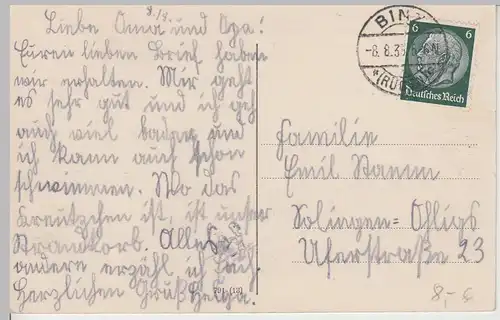 8./8.
Liebe Oma und Opa!
Euren lieben Brief haben
wir erhalten. Mir geht
es sehr gut und ich geh
auch viel baden und
ich kann auch schon
schwimmen. Wo das
Kreutzchen ist, ist unser
Strandkorb. Alles
andere erzähl ich Euch.
Herzlichen Gruß Helga.
701 (13)
BINZ
-8.8.3
(RÜG
6 6
Deutsches Reich
Familie
Emil Stamm
Solingen-Ohligs
Uferstraße 23
8,- €